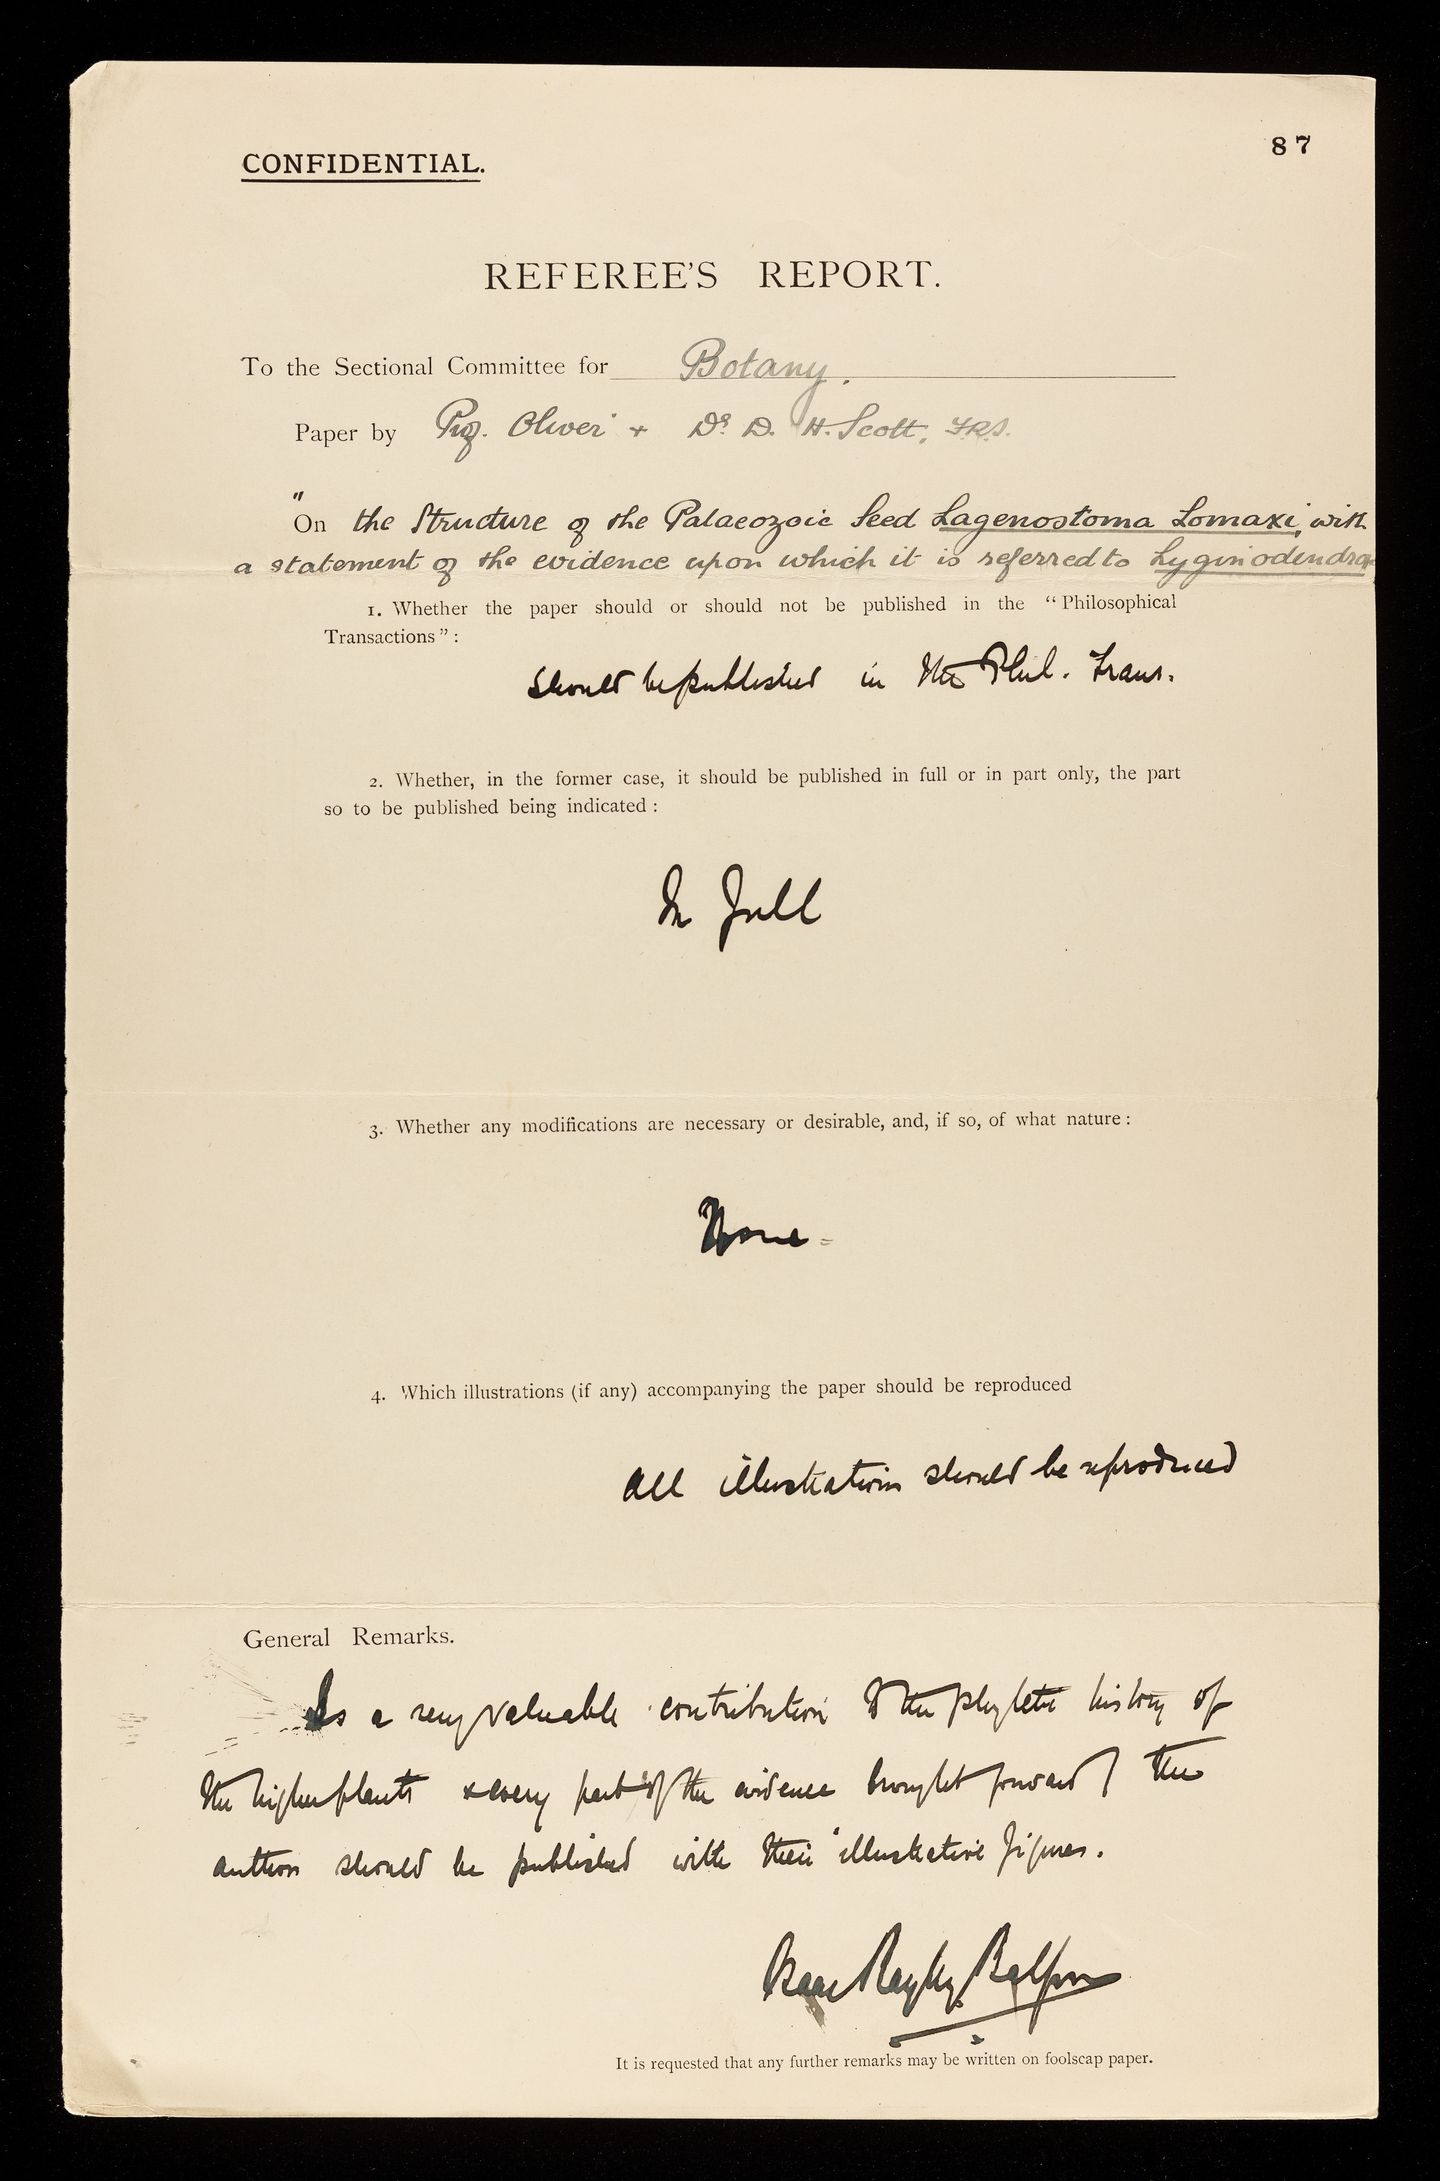 CONFIDENTIAL.
87
REFEREE'S REPORT.
To the Sectional Committee for Botany.
Paper by Prof. Oliver & Dr. D. H. Scott, F.R.S.
"On the Structure of the Palaeozoic Seed Lagenostoma Lomaxi, with
a statement of the evidence upon which it is referred to Lyginodendron
1. Whether the paper should or should not be published in the "Philosophical
Transactions":
Should be published in the Phil. Trans.
2. Whether, in the former case, it should be published in full or in part only, the part
so to be published being indicated:
In full
3. Whether any modifications are necessary or desirable, and, if so, of what nature:
None.
4. Which illustrations (if any) accompanying the paper should be reproduced
All illustrations should be reproduced
General Remarks.
Is a very valuable contribution to the phyletic history of
the higher plants & every part of the evidence brought forward by the
authors should be published with their illustrative figures.
Isaac Bayley Balfour
It is requested that any further remarks may be written on foolscap paper.